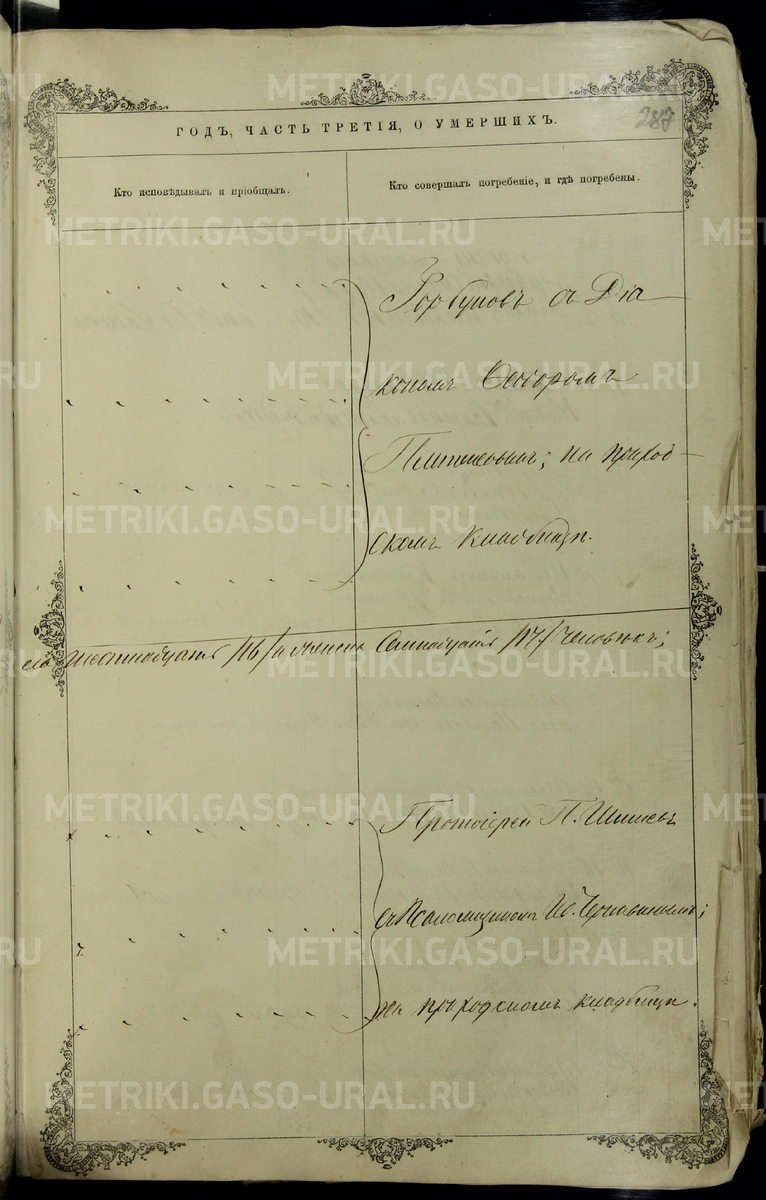 287
ГОДЪ, ЧАСТЬ ТРЕТІЯ, О УМЕРШИХЪ.
Кто исповѣдывалъ и пріобщалъ.
Кто совершалъ погребеніе, и гдѣ погребены.
Горбуновъ съ Діа-
кономъ Ѳеодоромъ
на приход-
скомъ кладбищѣ.
шестнадцать /16/ и женска семнадцать /17/ человѣкъ;
Протоіерей П. Шишевъ
съ Псаломщикомъ Ив. Чернавинымъ;
на приходскомъ кладбищѣ.
METRIKI.GASO-URAL.RU